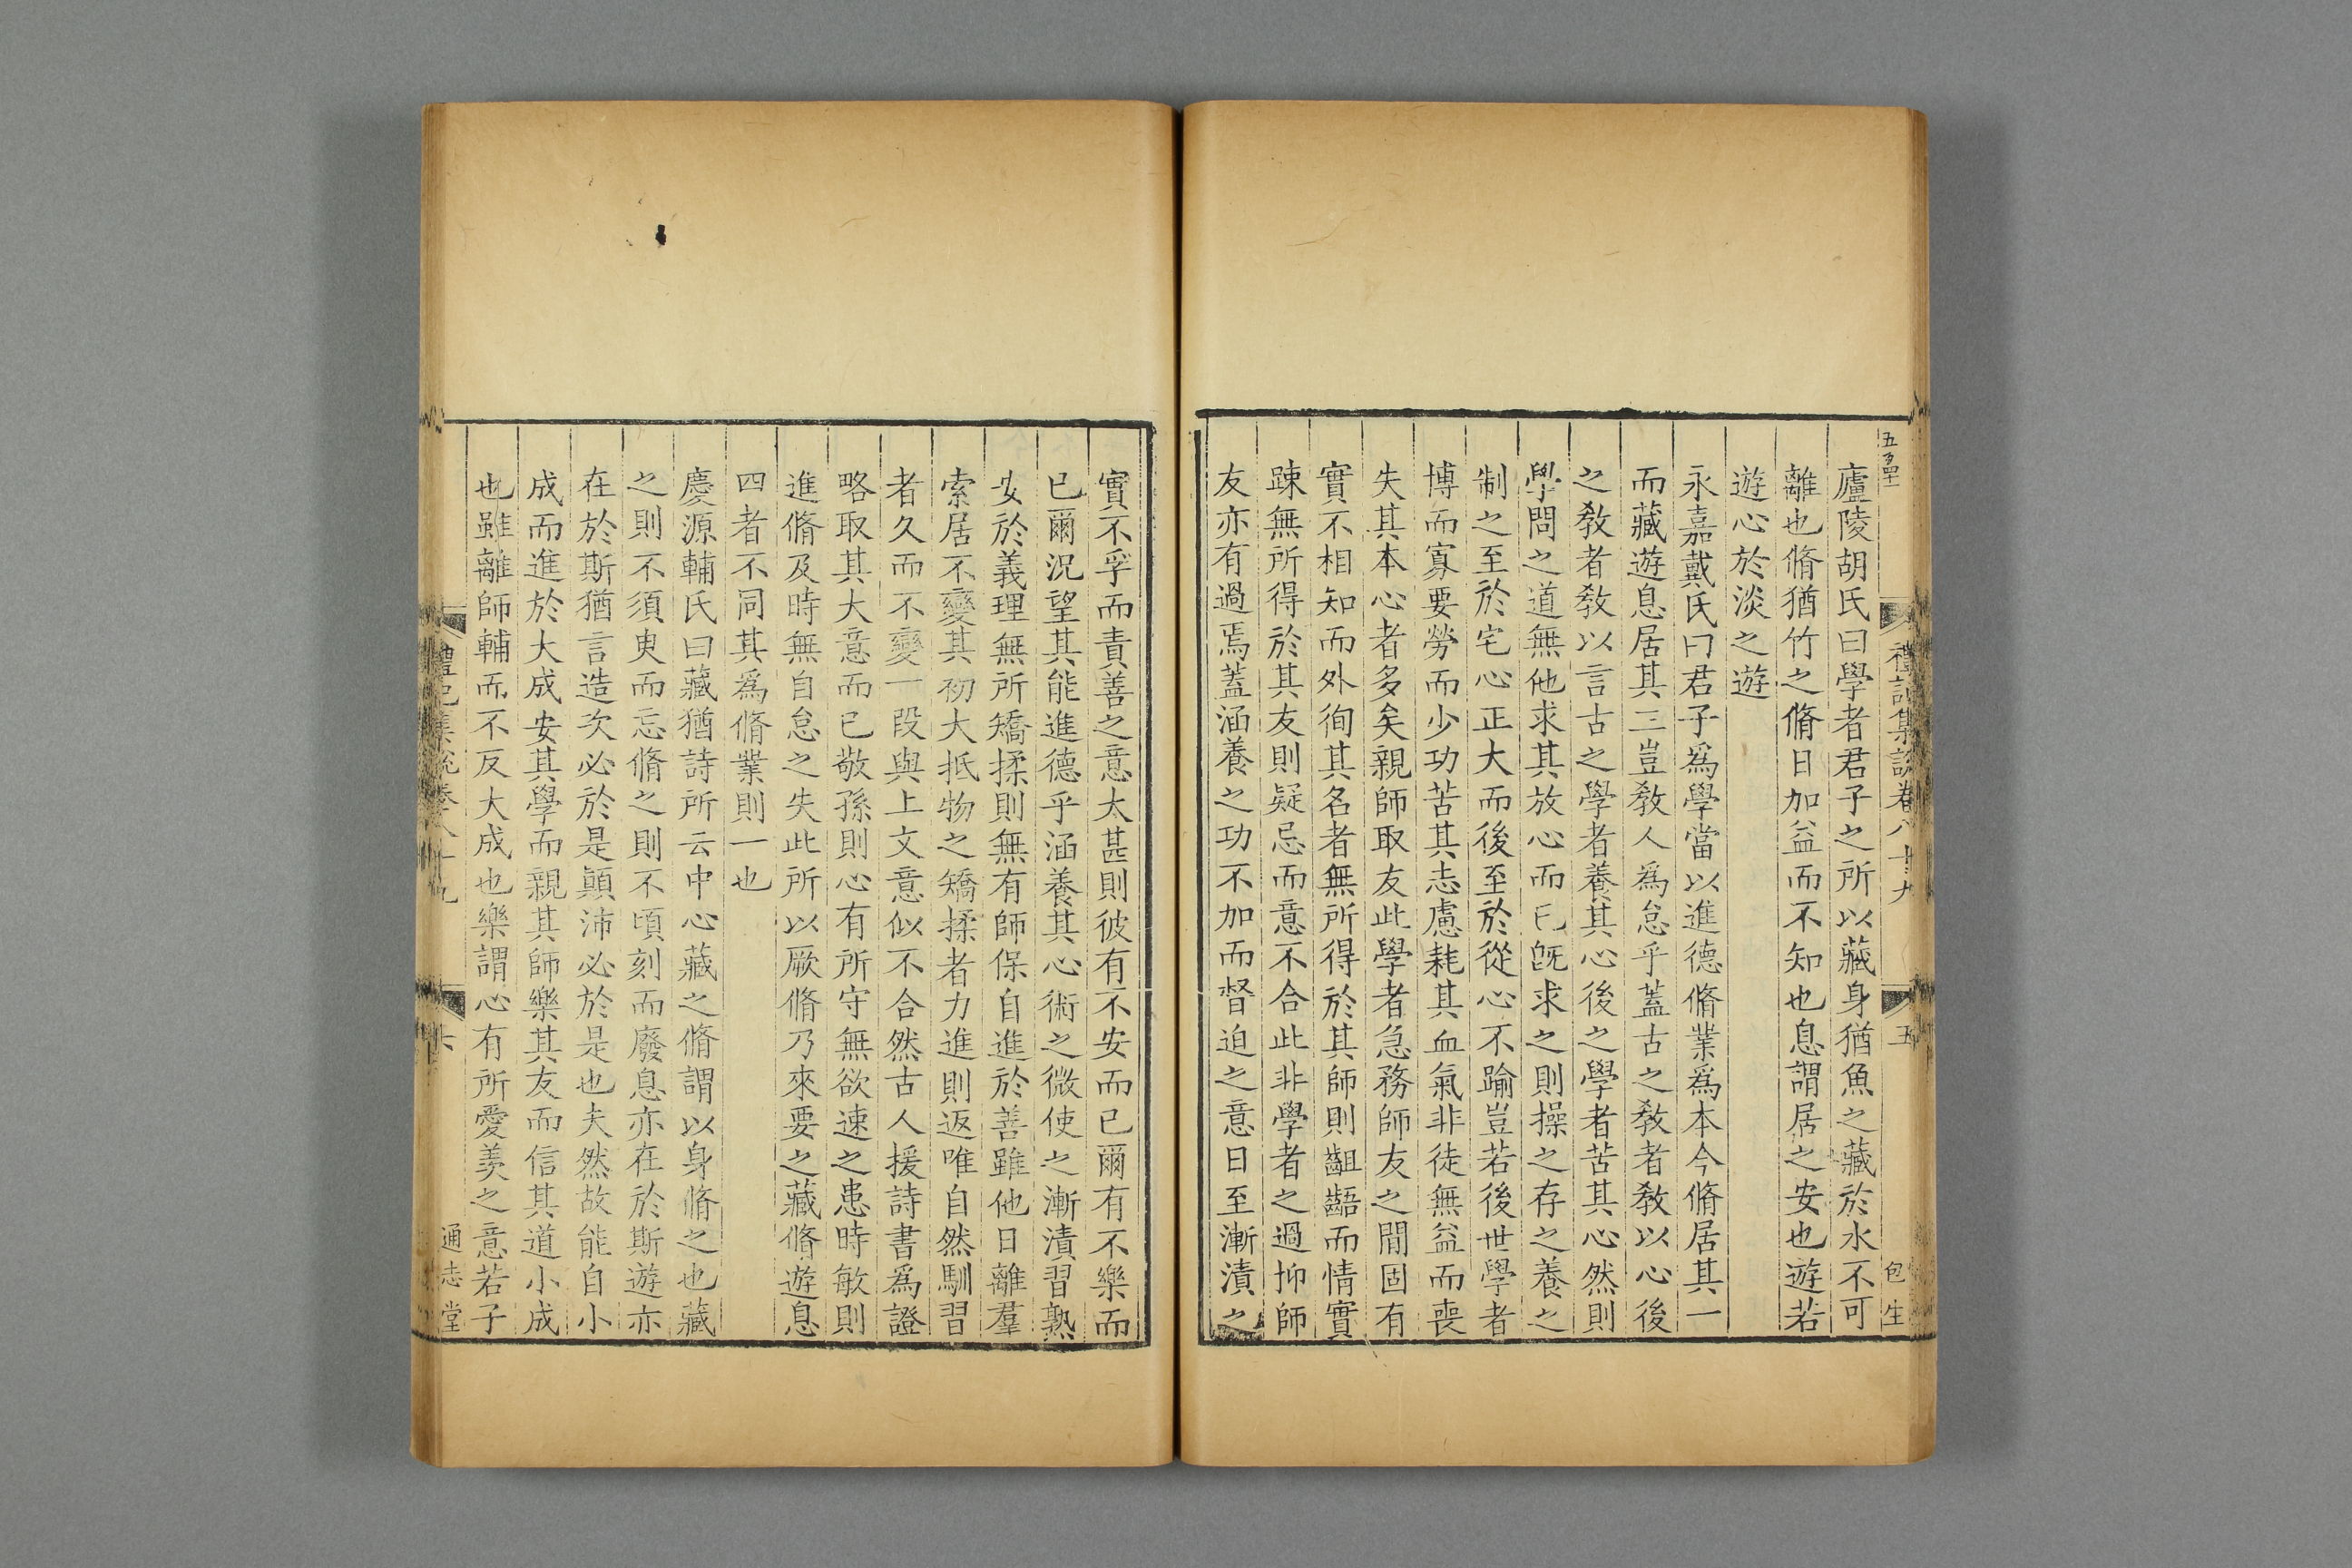 禮記集說卷八十九
五
包生
廬陵胡氏曰學者君子之所以藏身猶魚之藏於水不可
離也脩猶竹之脩日加益而不知也息謂居之安也遊若
遊心於淡之遊
永嘉戴氏曰君子爲學當以進德脩業爲本今脩居其一
而藏遊息居其三豈敎人爲怠乎蓋古之敎者敎以心後
之敎者敎以言古之學者養其心後之學者苦其心然則
學問之道無他求其放心而已旣求之則操之存之養之
制之至於宅心正大而後至於從心不踰豈若後世學者
博而寡要勞而少功苦其志慮耗其血氣非徒無益而喪
失其本心者多矣親師取友此學者急務師友之閒固有
實不相知而外徇其名者無所得於其師則齟齬而情實
踈無所得於其友則疑忌而意不合此非學者之過抑師
友亦有過焉蓋涵養之功不加而督迫之意日至漸漬之
實不孚而責善之意太甚則彼有不安而已爾有不樂而
已爾況望其能進德乎涵養其心術之微使之漸漬習熟
安於義理無所矯揉則無有師保自進於善雖他日離羣
索居不變其初大抵物之矯揉者力進則返唯自然馴習
者久而不變一段與上文意似不合然古人援詩書爲證
略取其大意而已敬孫則心有所守無欲速之患時敏則
進脩及時無自怠之失此所以厥脩乃來要之藏脩遊息
四者不同其爲脩業則一也
慶源輔氏曰藏猶詩所云中心藏之脩謂以身脩之也藏
之則不須臾而忘脩之則不頃刻而廢息亦在於斯遊亦
在於斯猶言造次必於是顚沛必於是也夫然故能自小
成而進於大成安其學而親其師樂其友而信其道小成
也雖離師輔而不反大成也樂謂心有所愛羨之意若子
禮記集說卷八十九
六
通志堂